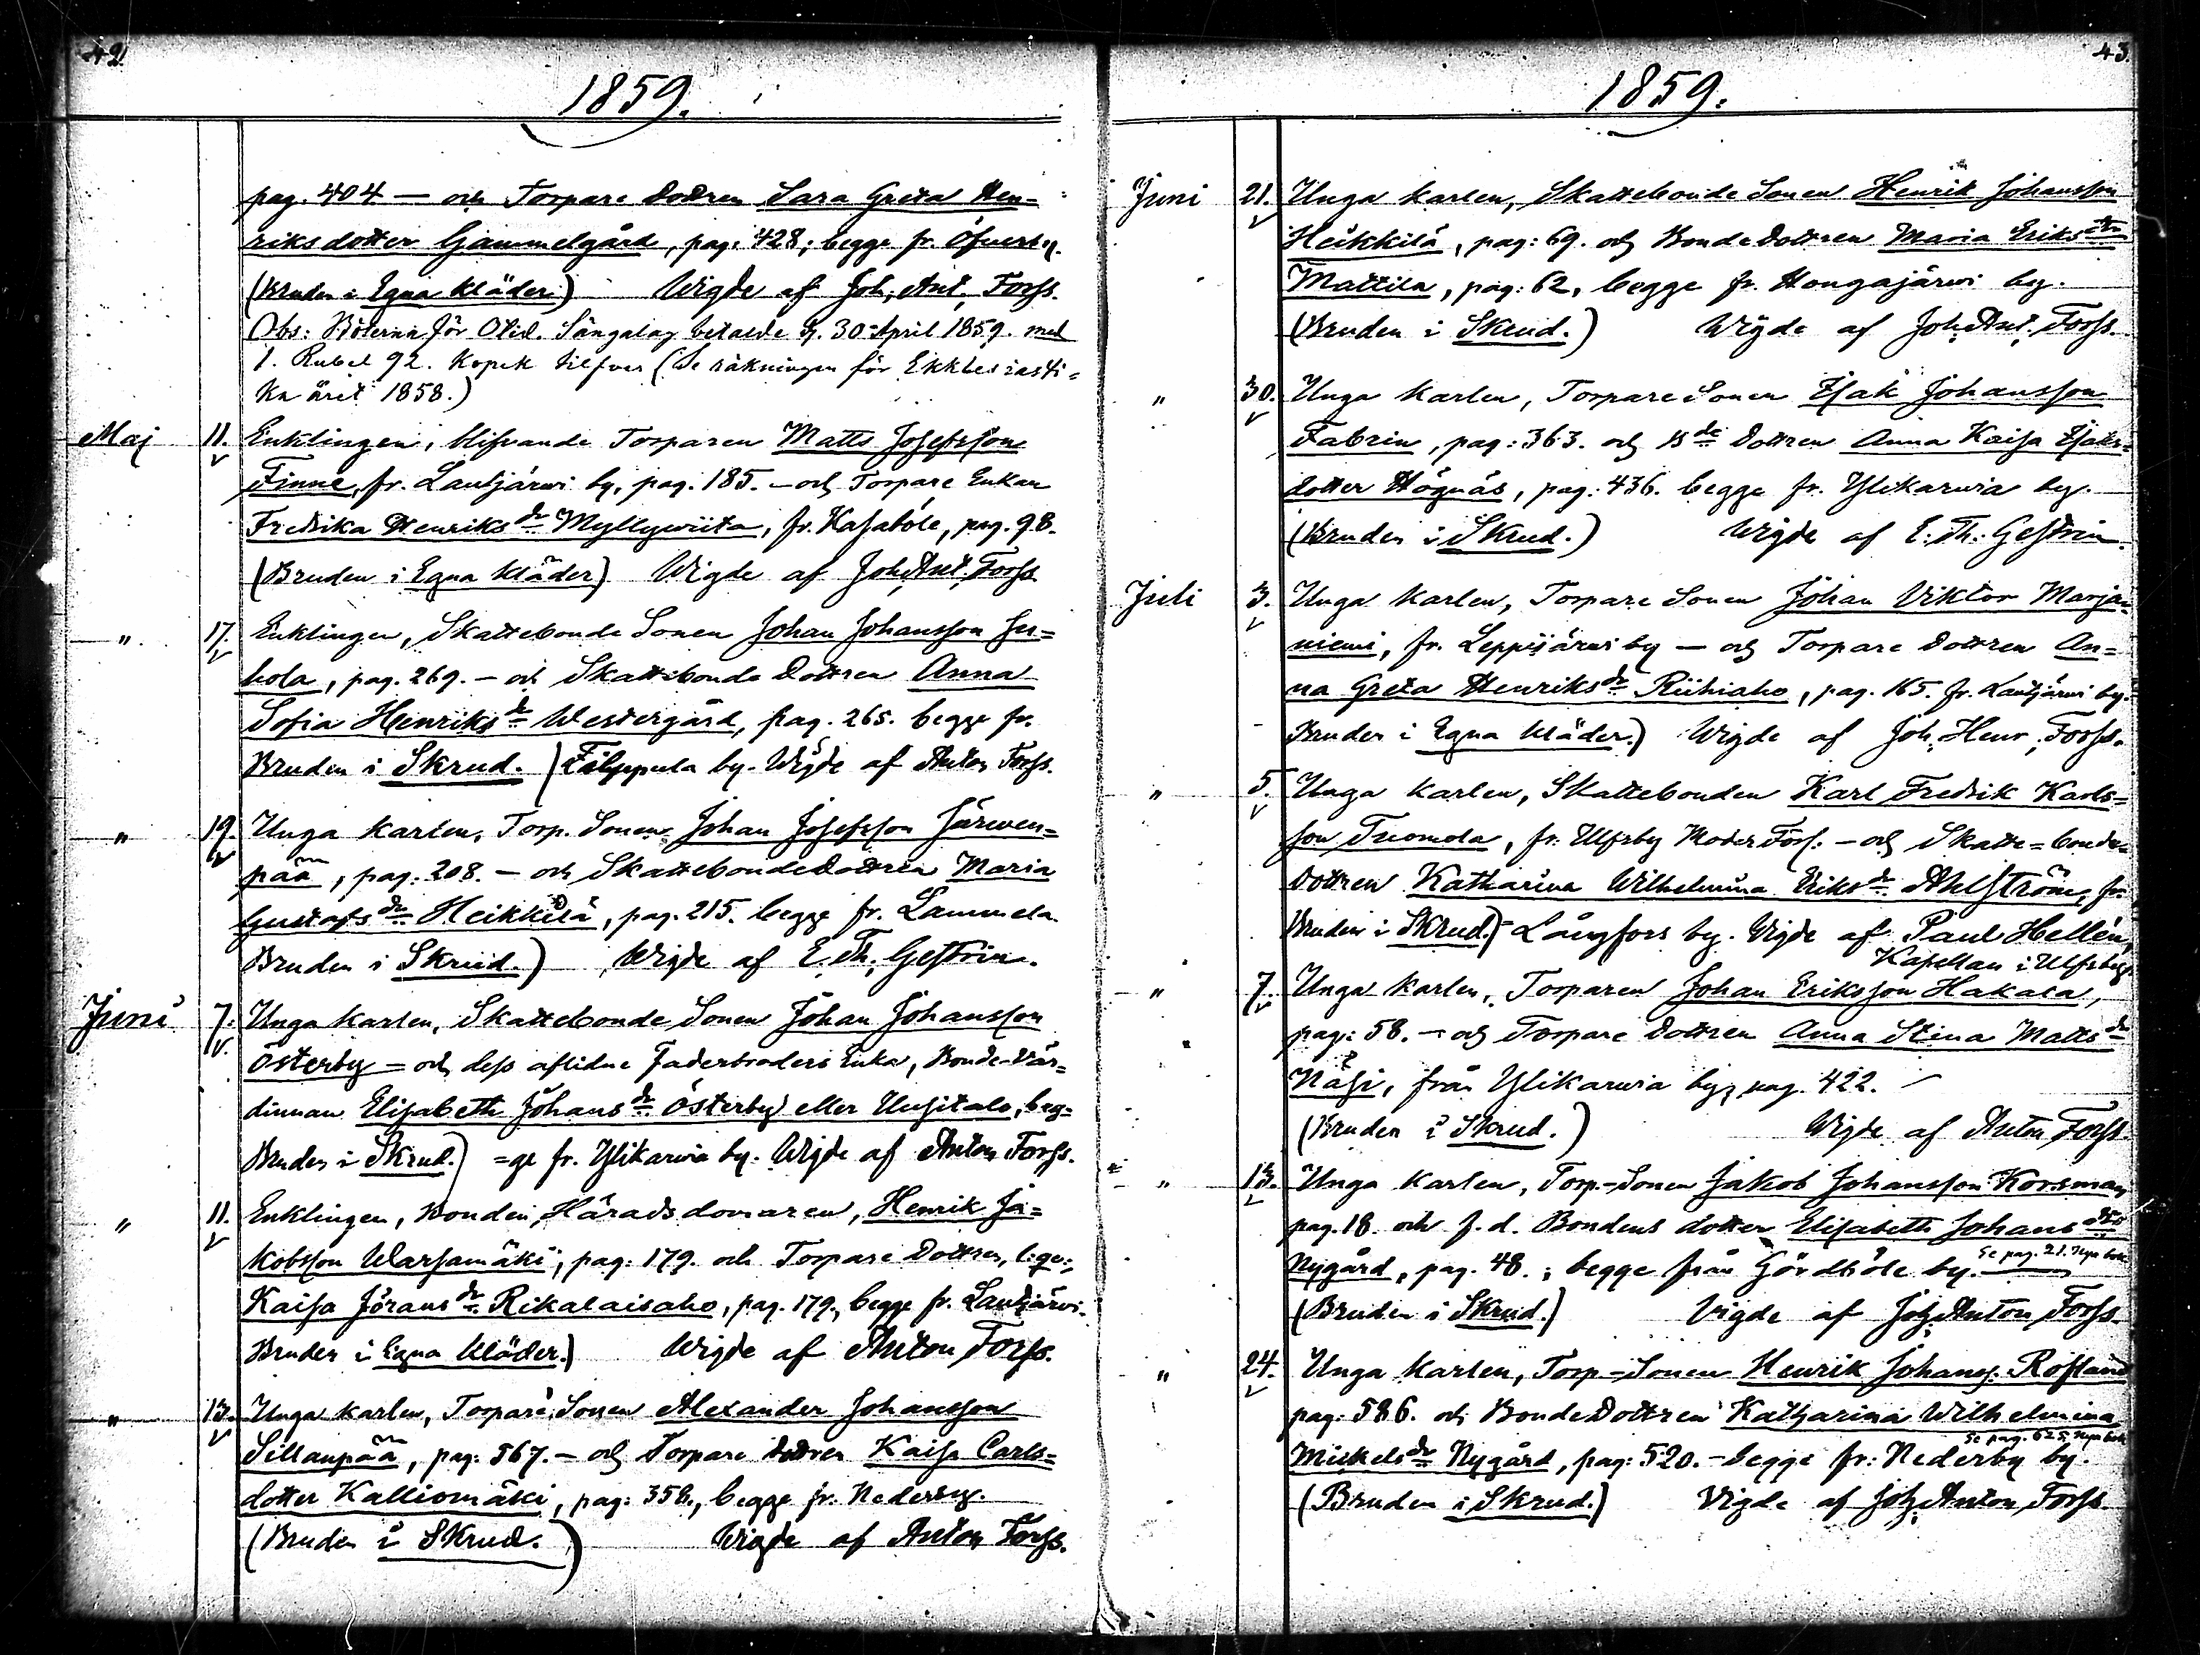 42.
1859.
pag. 404 — och Torpare dottren Sara Greta Hen-
riksdotter Gammelgård, pag. 428; begge fr. Öfverby.
(Bruden i Egna kläder) Wigde af Joh. Ant. Forss.
Obs: Böterna för Otid. Sängalag betalde d. 30 April 1859. med
1. Rubel 92. Kopek silfver (Se räkningen för Ekklesiasti-
ka året 1858.)
Maj 11. Enklingen, blifvande Torparen Matts Josefsson
Finne, fr. Lautjärwi by, pag. 185. — och Torpare Enkan
Fredrika Henriksdr Myllywiita, fr. Kasaböle, pag. 98.
(Bruden i Egna kläder) Wigde af Joh. Ant. Forss
" 17. Enklingen, Skattebonde Sonen Johan Johansson Ju-
hola, pag. 269. — och Skattebonde Dottren Anna
Sofia Henriksdr Westergård, pag. 265. begge fr.
Bruden i Skrud.) Filppula by. Wigde af Anton Forss.
" 19. Unga karlen, Torp. Sonen Johan Josefsson Järwen-
pää, pag. 208. — och Skattebondedottren Maria
Gustafsdr Heikkilä, pag. 215. begge fr. Lammela
Bruden i Skrud.) Wigde af E. Th. Gestrin.
Juni 7. Unga karlen, Skattebonde Sonen Johan Johansson
Österby — och dess aflidne Faderbroders Enka, Bonde-Vär-
dinnan Elisabeth Johansdr Österby eller Uusitalo, beg-
Bruden i Skrud.) =ge fr. Ylikarwia by. Wigde af Anton Forss.
" 11. Enklingen, Bonden, Häradsdomaren, Henrik Ja-
kobsson Warsamäki, pag. 179. och Torpare Dottren,
Kaisa Göransdr Rikalaisaho, pag. 179., begge fr. Lautjärwi.
Bruden i Egna kläder.) Wigde af Anton Forss.
" 13. Unga karlen, Torpare Sonen Alexander Johansson
Sillanpää, pag. 567. — och Torpare dottren Kaisa Carls-
dotter Kalliomäki, pag. 358., begge fr. Nederby.
(Bruden i Skrud.) Wigde af Anton Forss.
43.
1859.
Juni 21. Unga karlen, Skattebonde Sonen Henrik Johansson
Heikkilä, pag: 69. och Bonde dottren Maria Eriksdtr
Mattila, pag: 62, begge fr. Hongajärwi by.
(Bruden i Skrud.) Wigde af Joh. Ant. Forss.
" 30. Unga karlen, Torpare Sonen Isak Johansson
Fabrin, pag: 363. och Bde Dottren Anna Kaisa Isaks-
dotter Högnäs, pag: 436. begge fr. Ylikarwia by.
(Bruden i Skrud.) Wigde af E. Th. Gestrin.
Juli 3. Unga karlen, Torpare Sonen Johan Viktor Marja-
niemi, fr. Leppijärwi by — och Torpare dottren An-
na Greta Henriksdr Riihiaho, pag. 165. fr. Lautjärwi by.
Bruden i Egna kläder.) Wigde af Joh. Henr. Forss.
" 5. Unga karlen, Skattebonden Karl Fredrik Karls-
son Tuomola, fr. Ulfsby Moder Förs. — och Skatte=bonde-
dottren Katharina Wilhelmina Eriksdr Ahlström, fr.
Bruden i Skrud.) Långfors by. Wigde af Paul Hellén,
Kapellan i Ulfsby.
" 7. Unga karlen, Torparen Johan Eriksson Hakala,
pag: 58. — och Torpare dottren Anna Stina Mattsdr
Näsi, från Ylikarwia by, pag. 422.
(Bruden i Skrud.) Wigde af Anton Forss.
" 13. Unga karlen, Torp-Sonen Jakob Johansson Korsman,
pag. 18. och f.d. Bondens dotter Elisabeth Johansdtr
Nygård, pag. 48.; begge från Gördböle by. Se pag. 21. Nya bok.
(Bruden i Skrud.) Vigde af Joh. Anton Forss.
" 24. Unga karlen, Torp-Sonen Henrik Johanss. Rosslund
pag: 586. och Bonde Dottren Katharina Wilhelmina
Se pag. 625, Nya bok
Mickelsdr Nygård, pag: 520. — begge fr: Nederby by.
(Bruden i Skrud.) Vigde af Joh. Anton Forss.